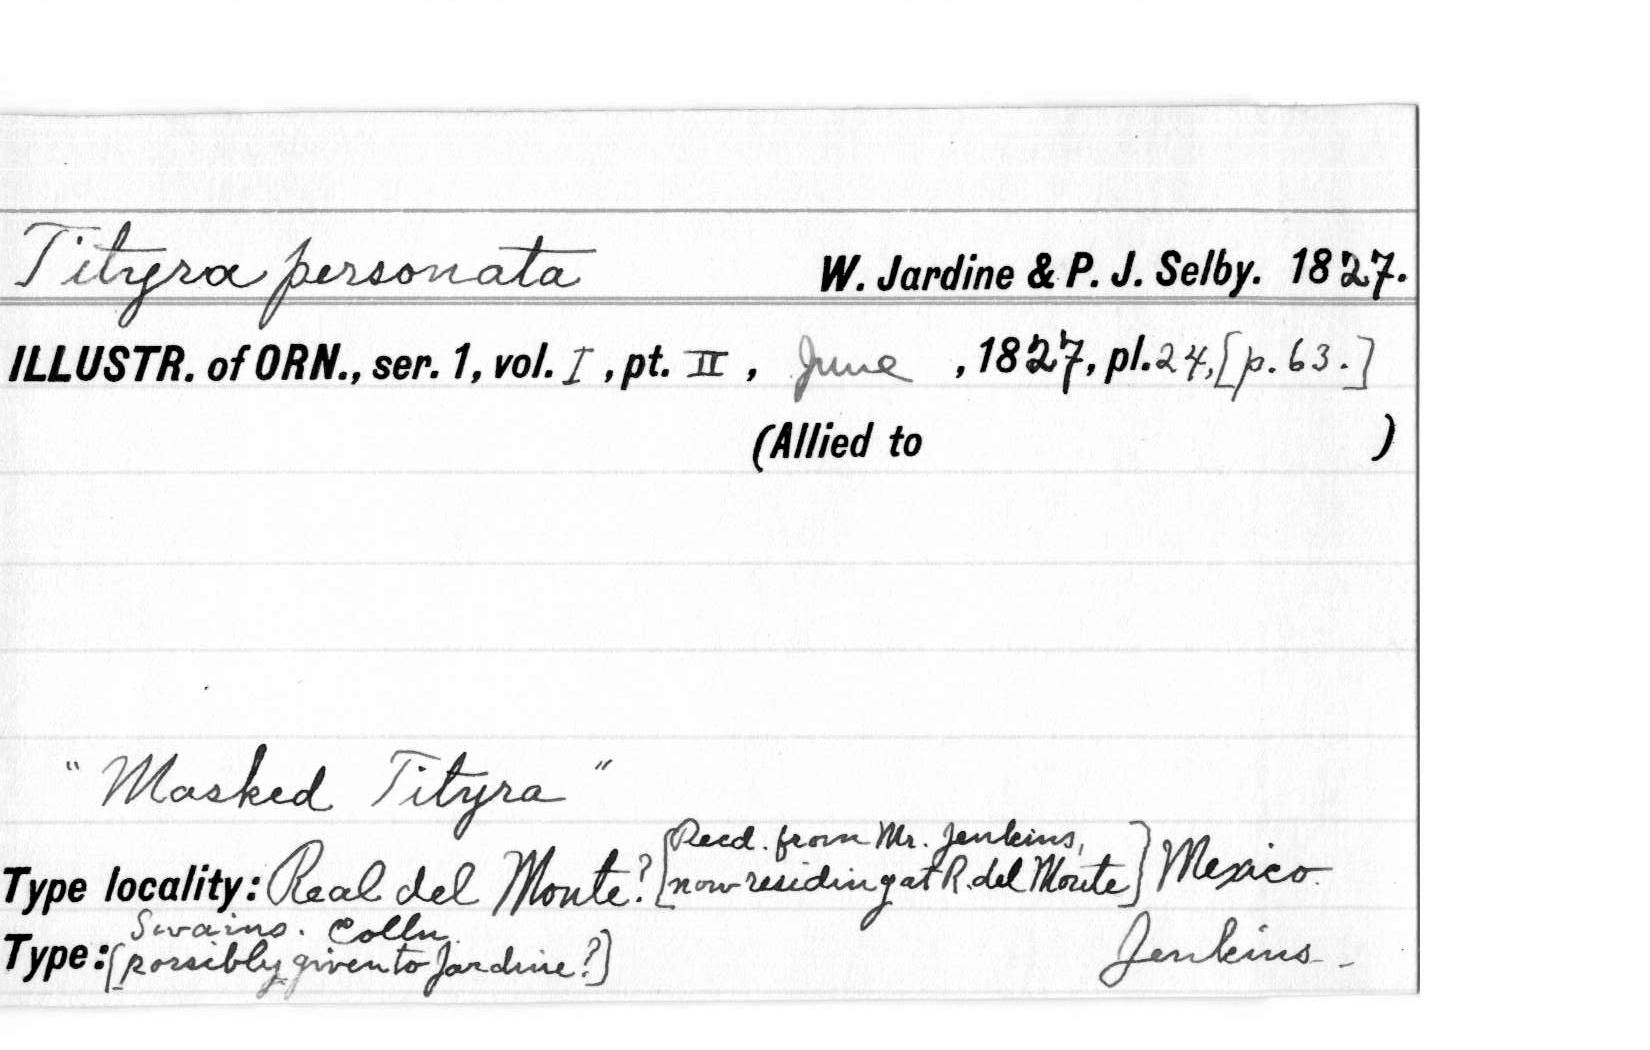 Tityra personata W. Jardine & P. J. Selby. 1827.
ILLUSTR. of ORN., ser. 1, vol. I, pt. II, June, 1827, pl. 24, [p. 63.]
(Allied to )
"Masked Tityra"
[Recd. from Mr. Jenkins,
Type locality: Real del Monte? now residing at R. del Monte] Mexico.
Swains. Colln.
Type: [possibly given to Jardine?] Jenkins -